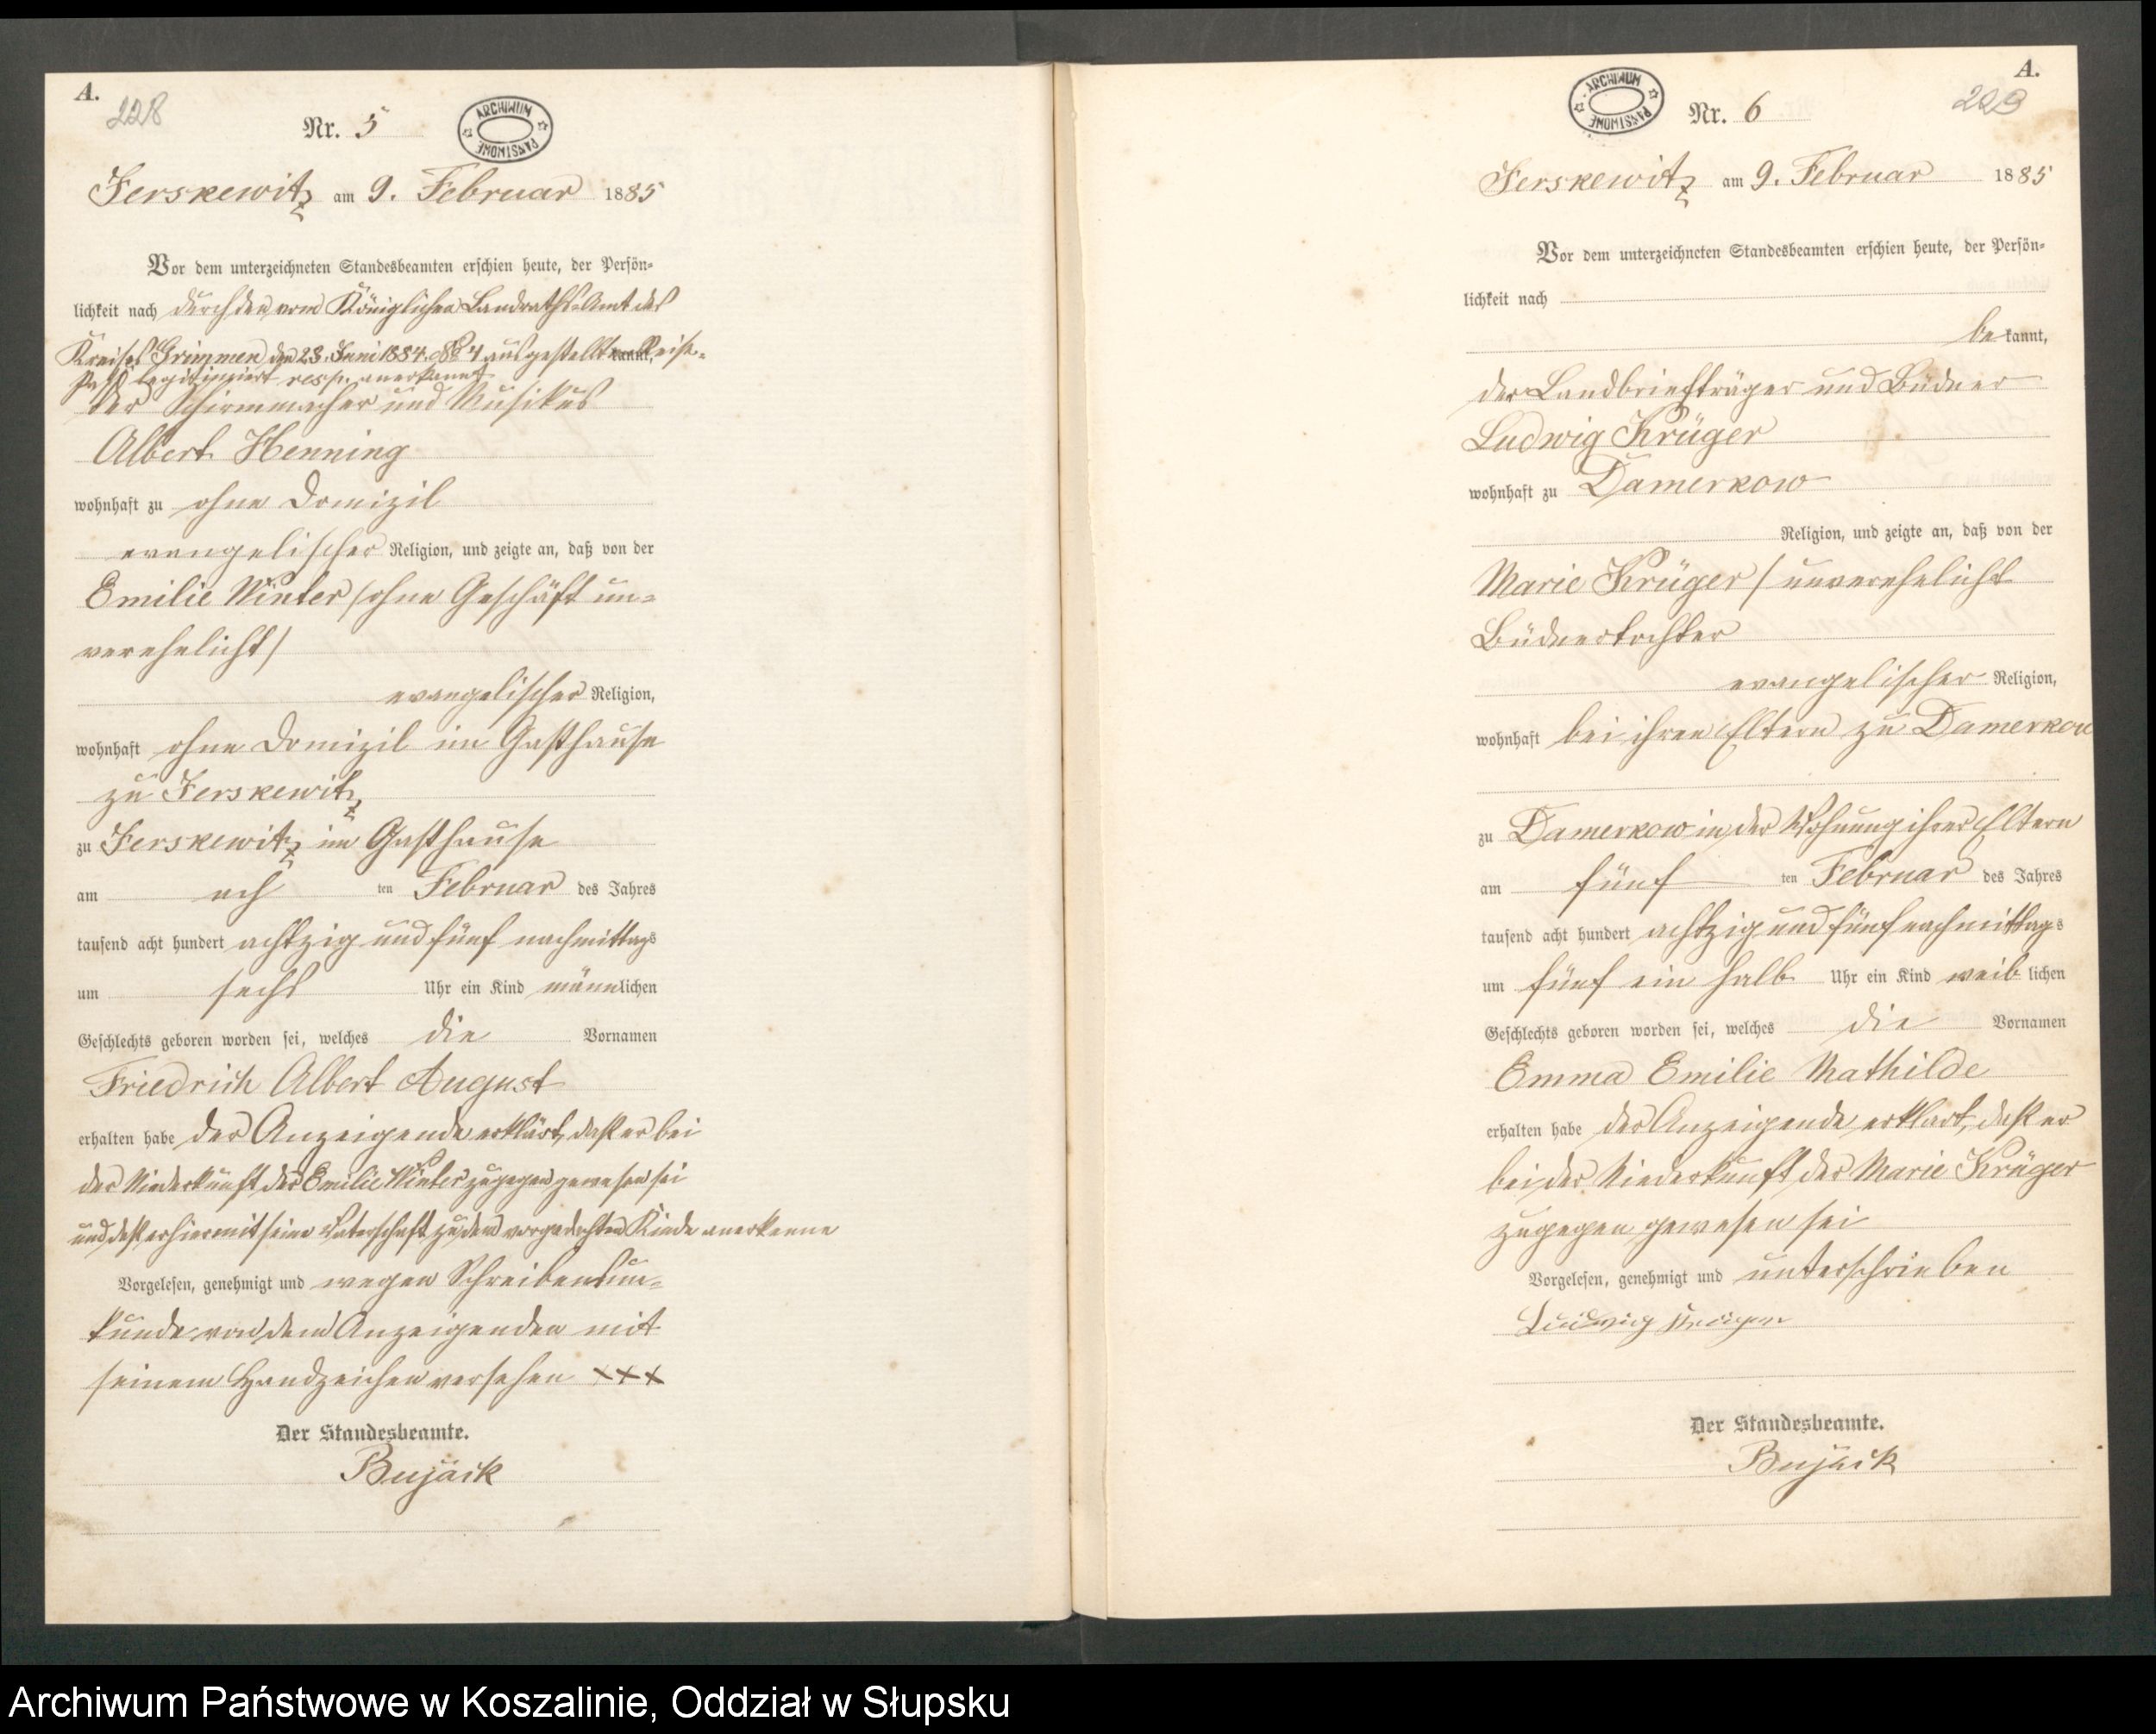 A.
228
Nr. 5
ARCHIWUM PAŃSTWOWE
Ferskewitz am 9. Februar 1885
Vor dem unterzeichneten Standesbeamten erschien heute, der Persön-
lichkeit nach durch den vom Königlichen Landraths-Amt des
Kreises Grimmen den 23. Juni 1884. No 4 ausgestellten Reise-
kannt,
Paß legitimiert resp. anerkannt
der Schirmmacher und Musikus
Albert Henning
wohnhaft zu ohne Domizil
evangelischer Religion, und zeigte an, daß von der
Emilie Winter (ohne Geschäft un-
verehelicht)
evangelischer Religion,
wohnhaft ohne Domizil im Gasthause
zu Ferskewitz
zu Ferskewitz im Gasthause
am ach ten Februar des Jahres
tausend acht hundert achtzig und fünf nachmittags
um sechs Uhr ein Kind männlichen
Geschlechts geboren worden sei, welches die Vornamen
Friedrich Albert August
erhalten habe der Anzeigende erklärt, daß er bei
der Niederkunft der Emilie Winter zugegen gewesen sei
und daß er hiermit seine Vaterschaft zu dem vorgedachten Kinde anerkenne
Vorgelesen, genehmigt und wegen Schreibensun-
kunde von dem Anzeigenden mit
seinem Handzeichen versehen XXX
Der Standesbeamte.
Bujäck
A.
229
Nr. 6
ARCHIWUM PAŃSTWOWE
Ferskewitz am 9. Februar 1885
Vor dem unterzeichneten Standesbeamten erschien heute, der Persön-
lichkeit nach
be kannt,
der Landbriefträger und Büdner
Ludwig Krüger
wohnhaft zu Damerkow
Religion, und zeigte an, daß von der
Marie Krüger / unverehelicht
Büdnertochter
evangelischer Religion,
wohnhaft bei ihren Eltern zu Damerkow
zu Damerkow in der Wohnung ihrer Eltern
am fünf ten Februar des Jahres
tausend acht hundert achtzig und fünf nachmittags
um fünf ein halb Uhr ein Kind weib lichen
Geschlechts geboren worden sei, welches die Vornamen
Emma Emilie Mathilde
erhalten habe der Anzeigende erklart, daß er
bei der Niederkunft der Marie Krüger
zugegen gewesen sei
Vorgelesen, genehmigt und unterschrieben
Ludwig Krüger
Der Standesbeamte.
Bujäck
Archiwum Państwowe w Koszalinie, Oddział w Słupsku